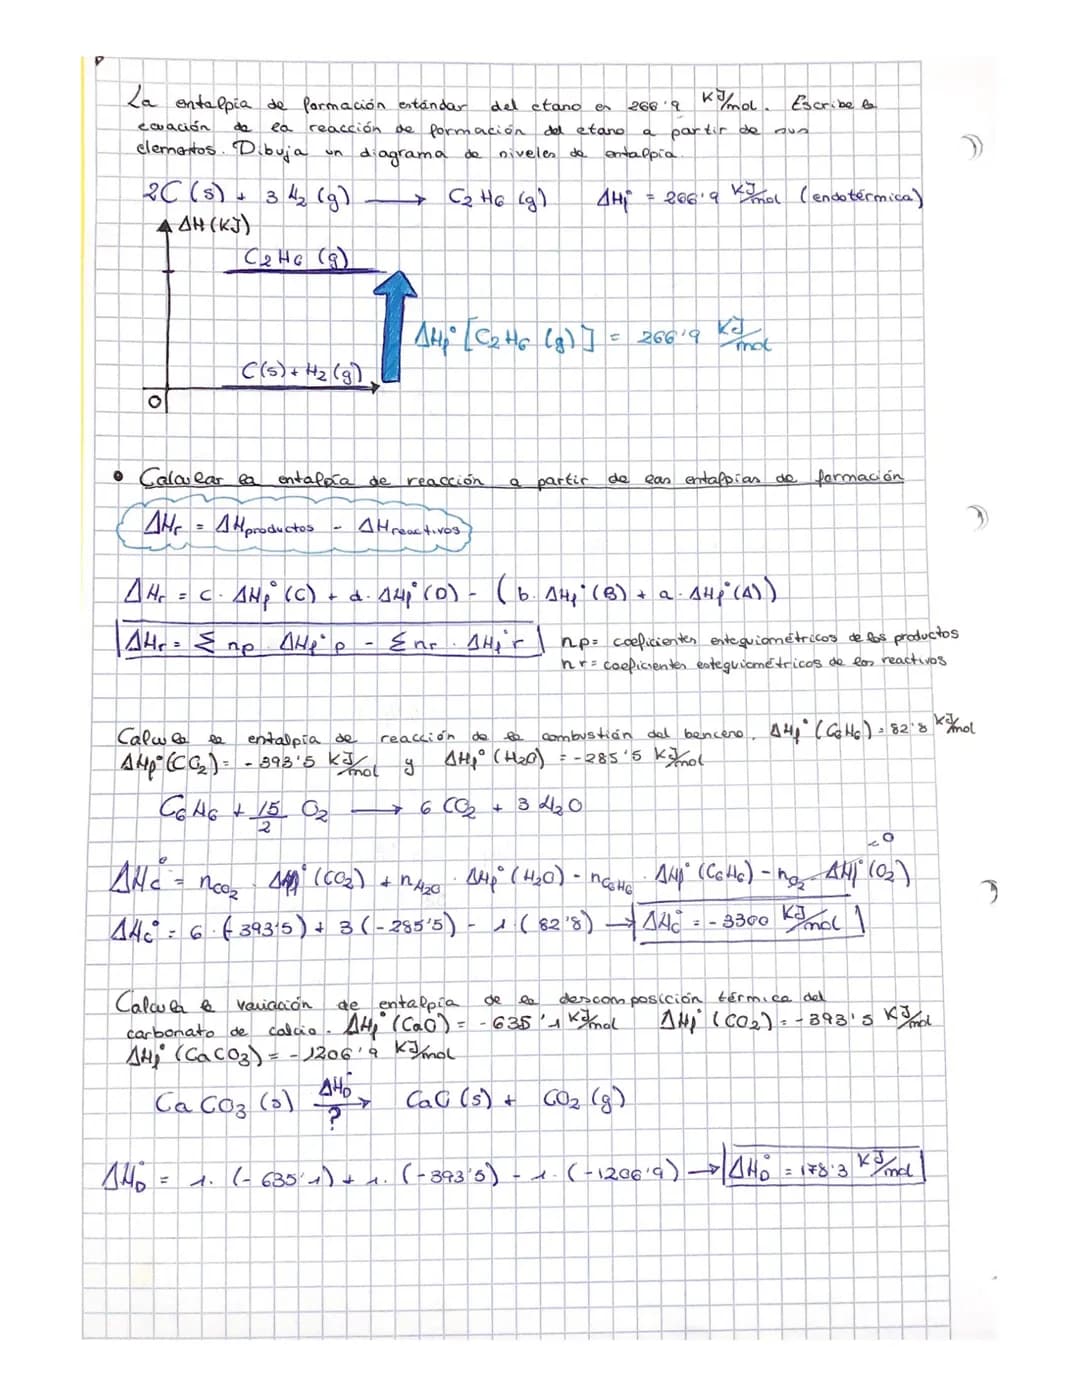 La entalpía de formación estándar del etano es 266'9 KJ/mol. Escribe la
ecuación de la reacción de formación del etano a partir de sus
elementos. Dibuja un diagrama de niveles de entalpía.
2C (s) + 3 H₂ (g) → C₂H₆ (g) ΔHf° = 266'9 KJ/mol (endotérmica)
ΔH (KJ)
C₂H₆ (g)
ΔHf° [C₂H₆ (g)] = 266'9 KJ/mol
C(s) + H₂ (g)
0
• Calcular la entalpía de reacción a partir de las entalpías de formación
ΔHr = ΔHproductos - ΔHreactivos
ΔHr = c · ΔHf° (C) + d · ΔHf° (D) - (b · ΔHf° (B) + a · ΔHf° (A))
ΔHr = Σ np · ΔHf° p - Σ nr · ΔHf° r
np = coeficientes estequiométricos de los productos
nr = coeficientes estequiométricos de los reactivos
Calcula la entalpía de reacción de la combustión del benceno. ΔHf° (C₆H₆) = 82'8 KJ/mol
ΔHf° (CO₂) = -393'5 KJ/mol y ΔHf° (H₂O) = -285'5 KJ/mol
C₆H₆ + 15/2 O₂ → 6 CO₂ + 3 H₂O
ΔHc° = nCO₂ · ΔHf° (CO₂) + nH₂O · ΔHf° (H₂O) - nC₆H₆ · ΔHf° (C₆H₆) - nO₂ · ΔHf° (O₂) = 0
ΔHc° = 6 · (-393'5) + 3 (-285'5) - 1 · (82'8) → ΔHc° = -3300 KJ/mol
Calcula la variación de entalpía de la descomposición térmica del
carbonato de calcio. ΔHf° (CaO) = -635'1 KJ/mol ΔHf° (CO₂) = -393'5 KJ/mol
ΔHf° (CaCO₃) = -1206'9 KJ/mol
CaCO₃ (s) ΔHD° ? → CaO (s) + CO₂ (g)
ΔHD° = 1 · (-635'1) + 1 · (-393'5) - 1 · (-1206'9) → ΔHD° = 178'3 KJ/mol